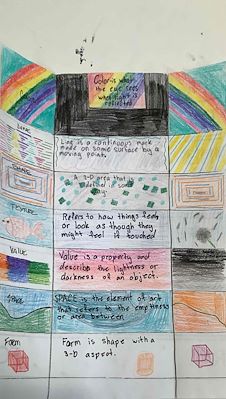 Color is what
the eye sees
when light is
reflected
LINE
Line is a continuous mark
made on some surface by a
moving point.
SHAPE
A 2-D area that is
defined in some
way.
TEXTURE
Refers to how things feels
or look as though they
might feel is touched
Value
Value is a property and
describe the lightness or
darkness of an object.
Space
SPACE is the element of art
that refers to the emptiness
or area between
Form
Form is shape with
a 3-D aspect.